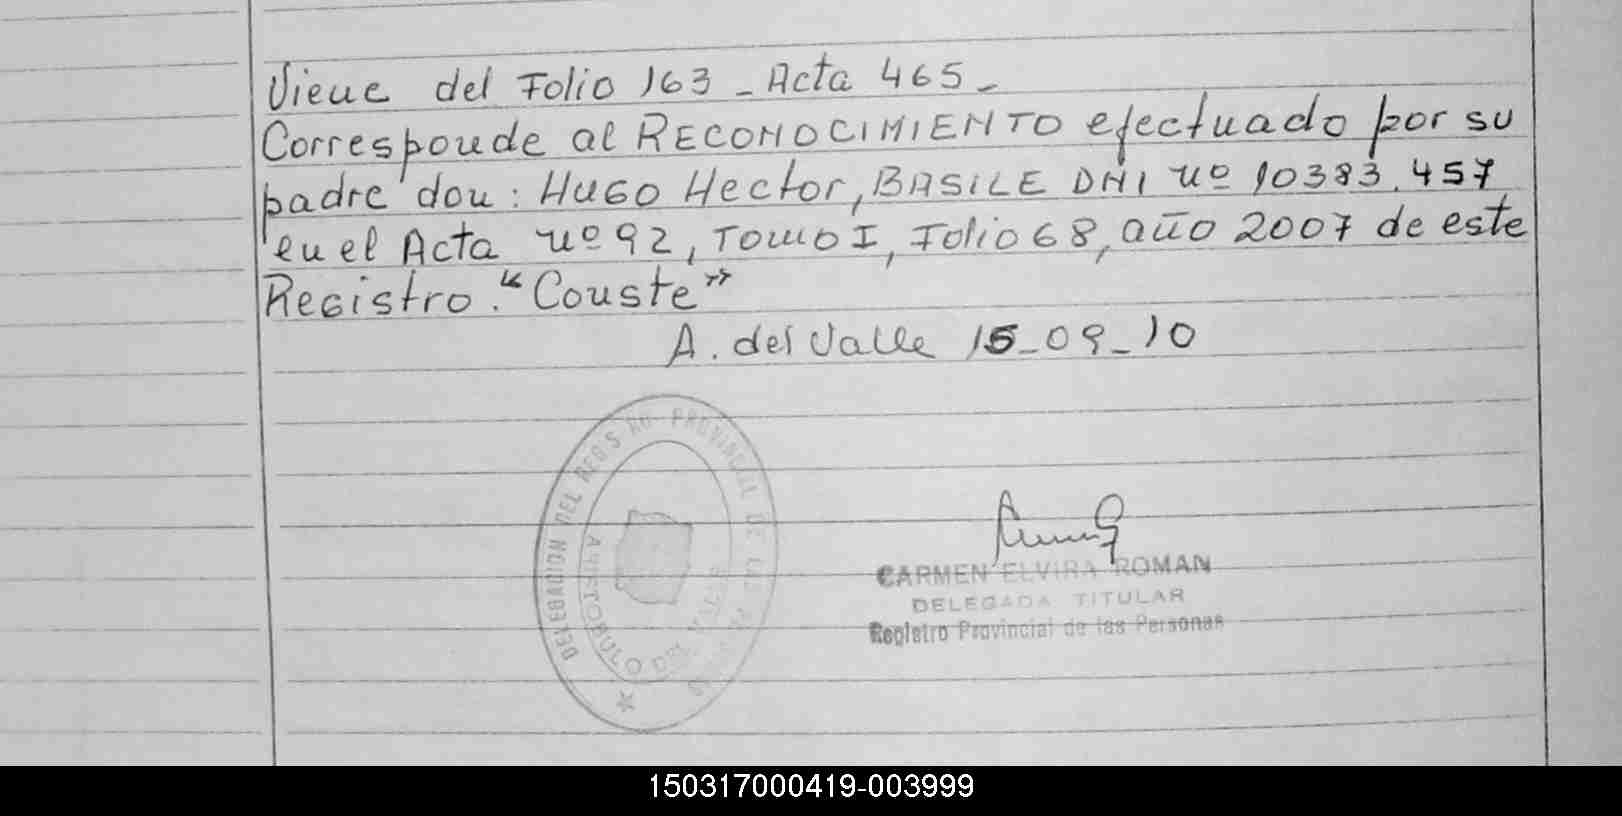 Viene del Folio 163 _ Acta 465 _
Corresponde al RECONOCIMIENTO efectuado por su
padre don: HUGO Hector, BASILE DNI nº 10383.457
en el Acta nº 92, TOMO I, Folio 68, año 2007 de este
Registro. "Conste"
A. del Valle 15_09_10
DELEGACION DEL REGISTRO PROVINCIAL DE LAS PERSONAS
ARISTOBULO DEL VALLE
CARMEN ELVIRA ROMAN
DELEGADA TITULAR
Registro Provincial de las Personas
150317000419-003999